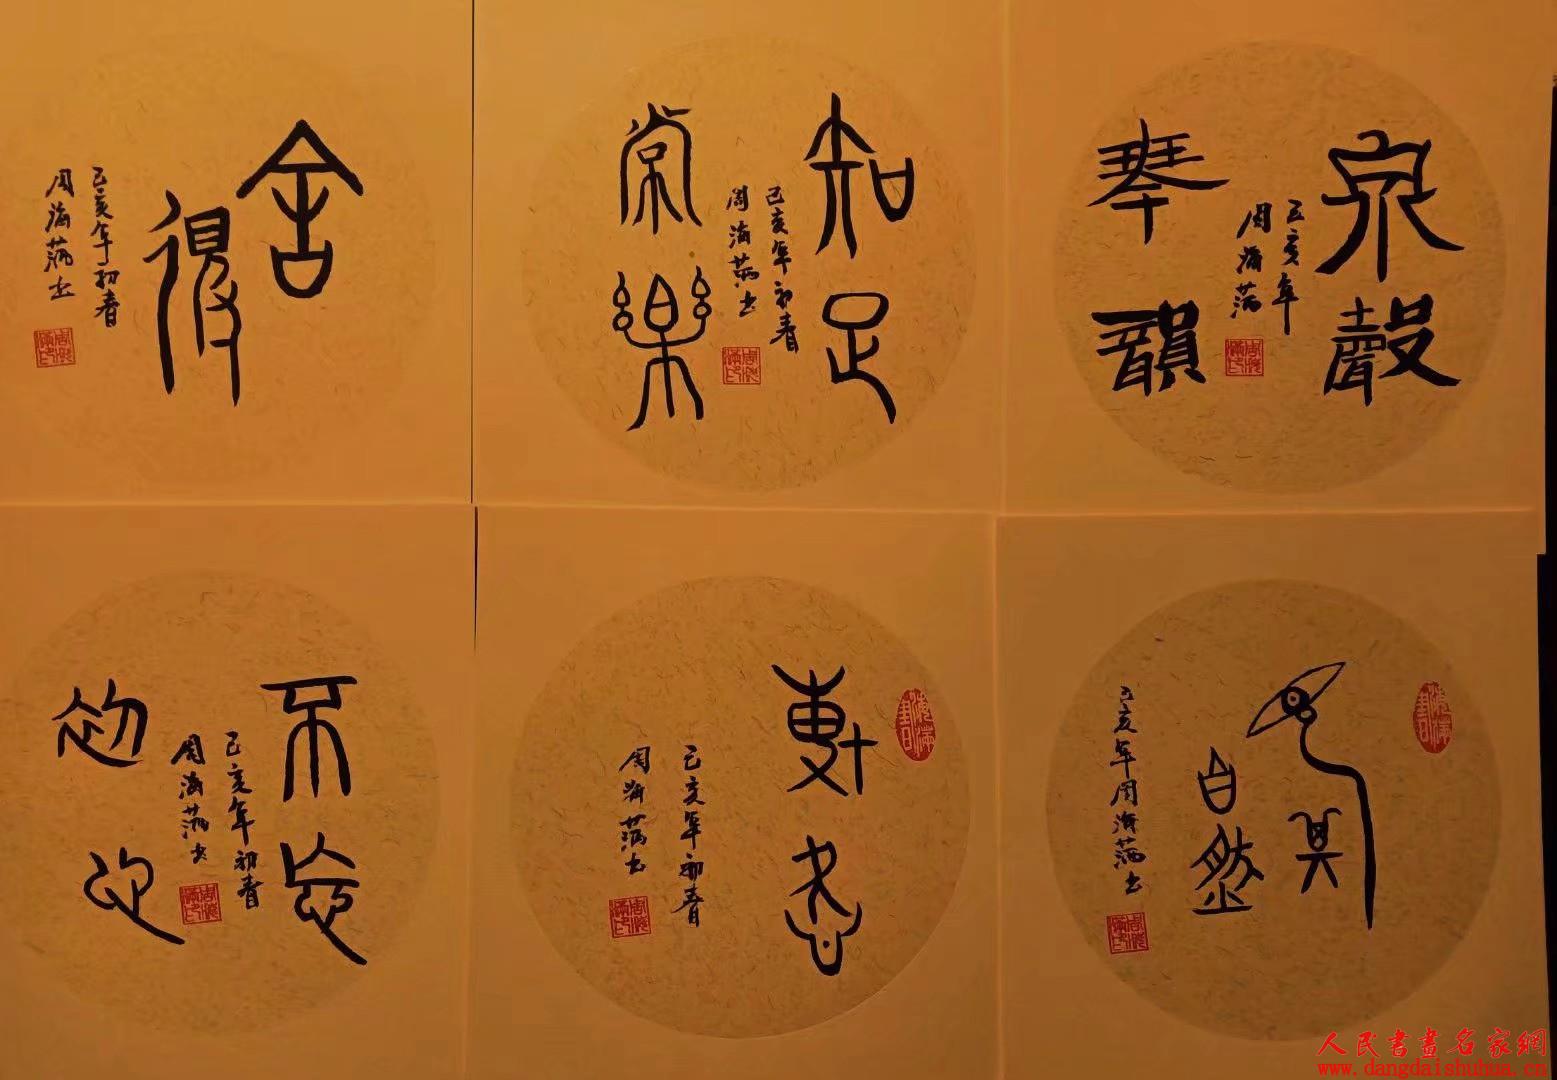 舍得
己亥年初春
周海滿书
知足
常樂
己亥年初春
周海滿书
泉聲
琴韻
己亥年
周海滿
不忘
初心
己亥年初春
周海滿书
惠
己亥年初春
周海滿书
道其
自然
己亥年周海滿书
人民書畫名家網
www.dangdaishuhua.cn